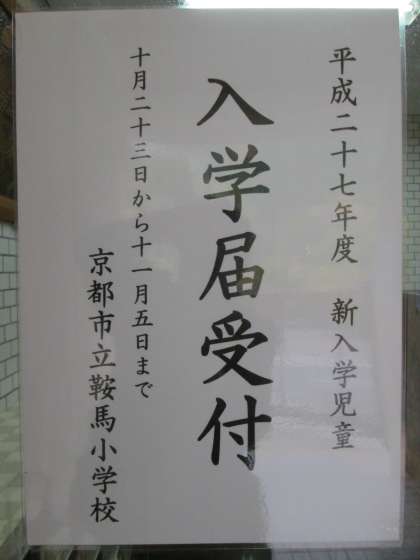 平成二十七年度 新入学児童
入学届受付
十月二十三日から十一月五日まで
京都市立鞍馬小学校